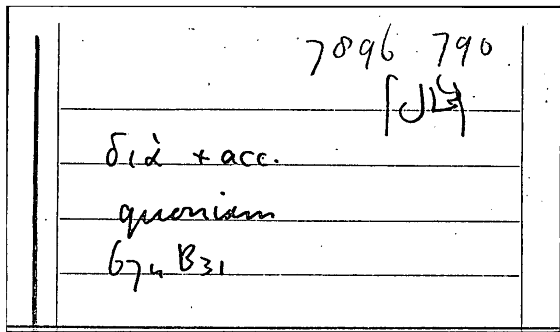 7896 790
διὰ + acc.
quoniam
B31